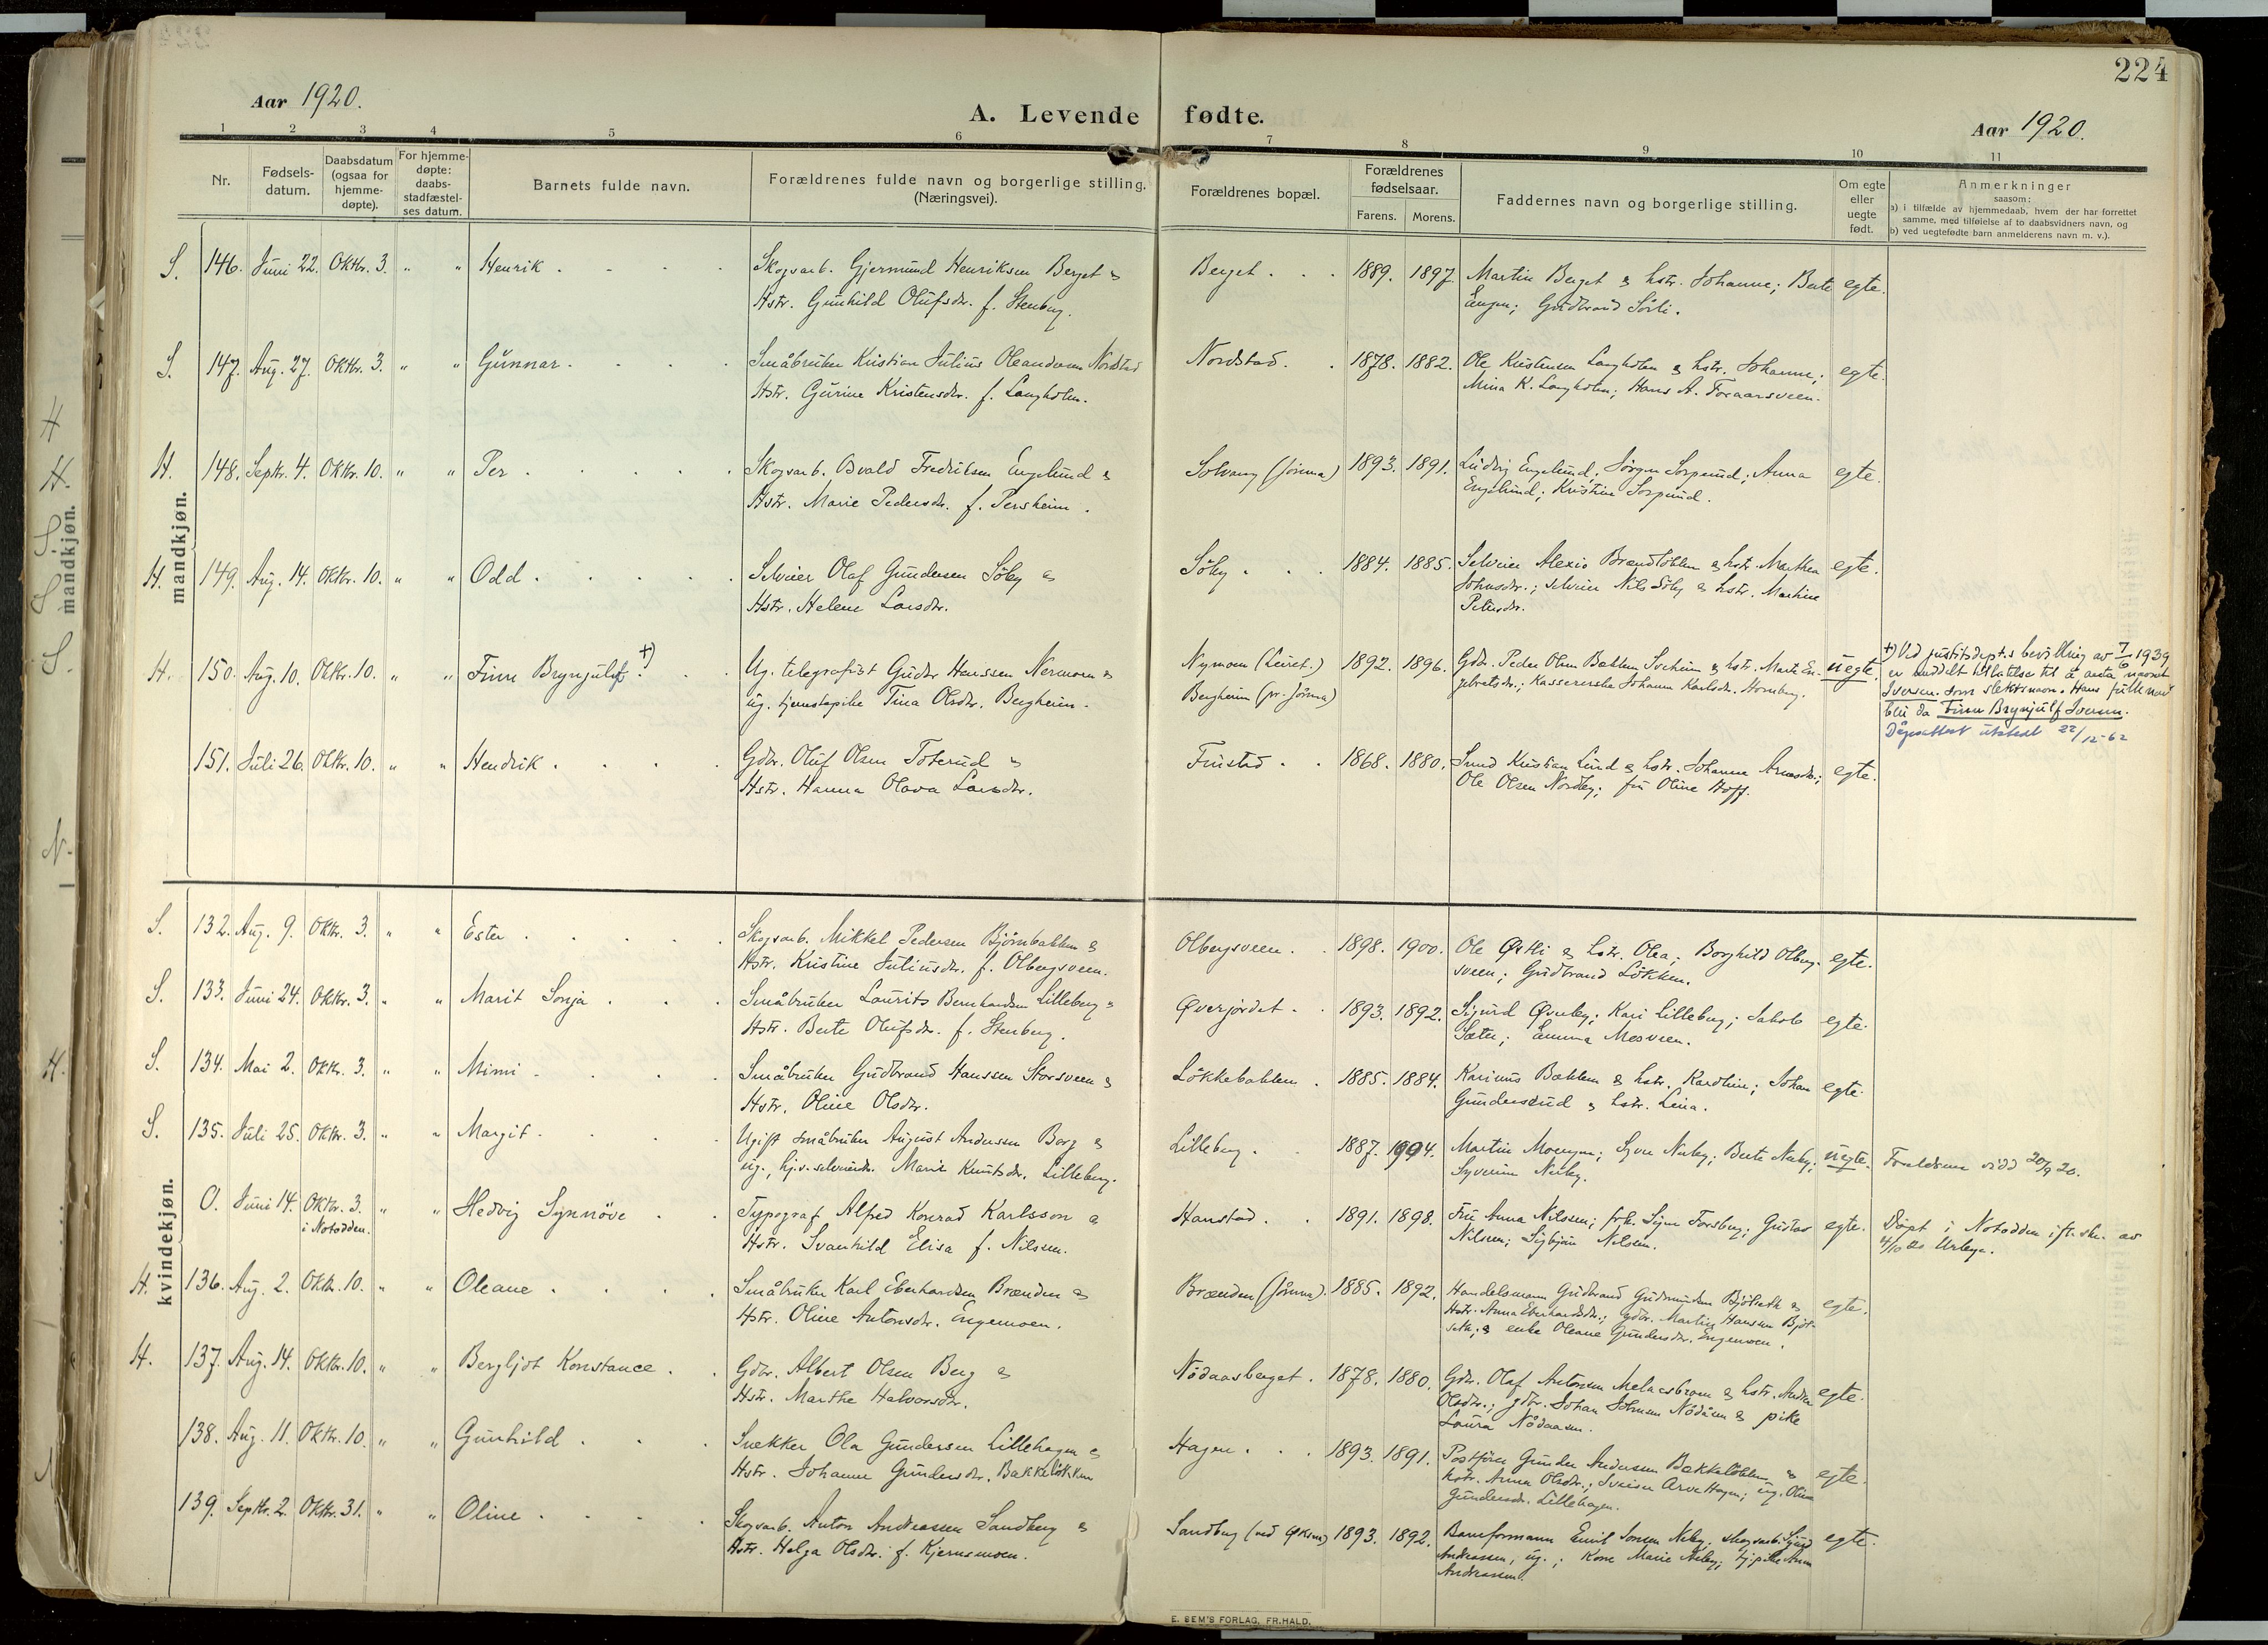 224
Aar 1920.
A. Levende fødte.
Aar 1920.
1 2 3 4 5 6 7 8 9 10 11
Nr.
Fødsels-
datum.
Daabsdatum
(ogsaa for
hjemme-
døpte).
For hjemme-
døpte:
daabs-
stadfæstel-
ses datum.
Barnets fulde navn.
Forældrenes fulde navn og borgerlige stilling.
(Næringsvei).
Forældrenes bopæl.
Forældrenes
fødselsaar.
Farens. Morens.
Faddernes navn og borgerlige stilling.
Om egte
eller
uegte
født.
Anmerkninger
saasom:
a) i tilfælde av hjemmedaab, hvem der har forrettet
samme, med tilføielse af to daabsvidners navn, og
b) ved uegtefødte barn anmelderens navn m. v.).
mandkjøn.
S. 146. Juni 22. Oktbr. 3. " " Henrik . Skogsarb. Gjermund Henriksen Berget & Berget . 1889. 1897. Martin Berget & hstr. Johanne; Berte egte.
Hstr. Gunhild Olufsdr. f. Stenberg. Engen; Gudbrand Sörli.
S. 147. Aug. 27. Oktbr. 3. " " Gunnar . Småbruker Kristian Julius Oleandersen Nordstad Nordstad. 1878. 1882. Ole Kristensen Langholen & hstr. Johanne; egte.
Hstr. Gurine Kristensdr. f. Langholen. Mina K. Langholen; Hans A. Foraarsveen.
H. 148. Septr. 4. Oktbr. 10. " " Per . Skogsarb. Osvald Fredriksen Engelund & Solvang (Jömna) 1893. 1891. Ludvig Engelund; Jörgen Sorpund; Anna egte.
Hstr. Marie Pedersdr. f. Persheim. Engelund; Kristine Sorpund.
H. 149. Aug. 14. Oktbr. 10. " " Odd . Selveier Olaf Gundersen Söby & Söby . 1884. 1885. Selveier Alexis Brændlökken & hstr. Marthea egte.
Hstr. Helene Larsdr. Johnsdr.; selveier Nils Söby & hstr. Martine
Petersdr.
H. 150. Aug. 10. Oktbr. 10. " " Finn Brynjulf +) Ug. telegrafist Gudbr. Hanssen Nermoen & Nymoen (Leiret.) 1892. 1896. Gdbr. Peder Olsen Bakken Sveheim & hstr. Marte En- uegte.
ug. tjenestepike Tina Olsdr. Bergheim. Bergheim (pr. Jömna) gebretsdr.; kassererske Johanne Karlsdr. Hornberg.
+) Ved justitsdept.s bevilling av 7/6 1939
er meddelt tillatelse til å anta navnet
Iversen som slektsnavn. Hans fulle navn
blir da Finn Brynjulf Iversen.
Dåpsattest utstedt 22/12-62
151. Juli 26. Oktbr. 10. " " Hendrik . Gdbr. Oluf Olsen Toterud & Finstad . 1868. 1880. Smed Kristian Lund & hstr. Johanne Arnesdr.; egte.
Hstr. Hanna Olava Larsdr. Ole Olsen Nordby; fru Oline Hoff.
kvindekjøn.
S. 132. Aug. 9. Oktbr. 3. " " Ester . Skogsarb. Mikkel Pedersen Björnbakken & Olbergsveen. 1898. 1900. Ole Østli & hstr. Olea; Borghild Olberg- egte.
Hstr. Kristine Juliusdr. f. Olbergsveen. sveen; Gudbrand Lökken.
S. 133. Juni 24. Oktbr. 3. " " Marit Sonja . Småbruker Laurits Bernhardsen Lilleberg & Øverjordet . 1893. 1892. Sigurd Øverby; Kari Lilleberg; Jakob egte.
Hstr. Berte Olufsdr. f. Stenberg. Sæter; Emma Mosveen.
S. 134. Mai 2. Oktbr. 3. " " Mimi . Småbruker Gudbrand Hanssen Storsveen & Lökkebakken . 1885. 1884. Karinus Bakken & hstr. Karoline; Johan egte.
Hstr. Oline Olsdr. Gunderserud & hstr. Lina.
S. 135. Juli 25. Oktbr. 3. " " Margit . Ugift småbruker August Andersen Berg & Lilleberg . 1887. 1904. Martin Moengen; Syver Nerby; Berte Nerby; uegte. Foreldrene viet 20/9 20.
ug., hj.v. selveierdr. Marie Knutsdr. Lilleberg. Syverine Nerby.
O. Juni 14. Oktbr. 3. " " Hedvig Synnöve . Typograf Alfred Konrad Karlsson & Hanstad . 1891. 1898. Fru Anna Nilssen; frk. Signe Torsberg; Gustav egte. Döpt i Notodden ifl. skr. av
i Notodden. Hstr. Svanhild Elisa f. Nilsen. Nilsen; Sigbjörn Nilsen. 4/10 20
H. 136. Aug. 2. Oktbr. 10. " " Oleane . Småbruker Karl Eberhardsen Brænden & Brænden (Jömna) 1885. 1892. Handelsmann Gudbrand Gudmundsen Bjölseth & egte.
Hstr. Oline Antonsdr. Engemoen. Hstr. Anna Eberhardsdr.; gdbr. Martin Hanssen Bjöl-
seth; & enke Oleane Gundersdr. Engemoen.
H. 137. Aug. 14. Oktbr. 10. " " Bergljot Konstance . Gdbr. Albert Olsen Berg & Nödaasberget . 1878. 1880. Gdbr. Olaf Antonsen Melaasbraaen & hstr. Andrea egte.
Hstr. Marthe Halvorsdr. Olsdr.; gdbr. Johan Johnsen Nödaasen & pike
Laura Nödaasen.
138. Aug. 11. Oktbr. 10. " " Gunhild . Snekker Ola Gundersen Lillehagen & Hagen . 1893. 1891. Postförer Gunder Andersen Bækkelökken & egte.
Hstr. Johanne Gundersdr. Bækkelökken hstr. Anna Olsdr.; Sveiser Arve Hagen; ug. Oline
Gundersdr. Lillehagen.
139. Septbr. 2. Oktbr. 31. " " Oline . Skogsarb. Anton Andreassen Sandberg & Sandberg (ved Øksna) 1893. 1892. Baneformann Emil Jonsen Neby; skogsarb. Sigurd egte.
Hstr. Helga Olsdr. f. Kjernsmoen. Andreassen, ug.; Kone Marie Neby; tj. pike Anna
Andreassen.
E. SEM'S FORLAG, FR.HALD.